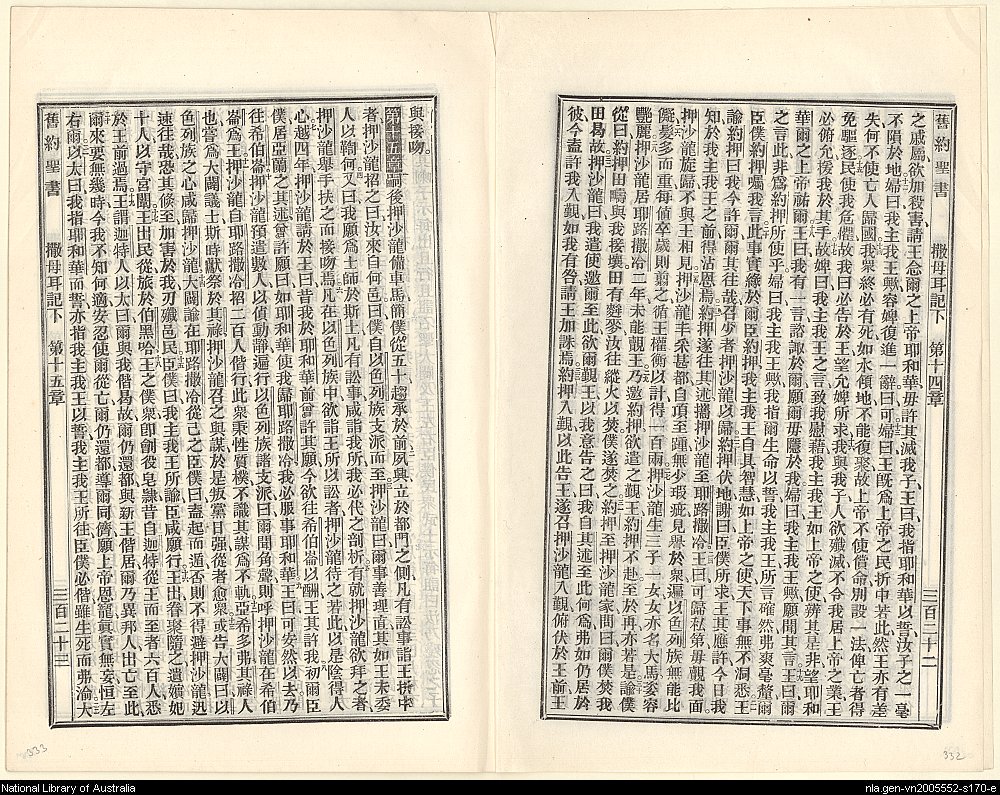 舊約聖書 撒母耳記下 第十四章 三百二十二
之戚屬欲加殺害請王念爾之上帝耶和華毋許其滅我子王曰我指耶和華以誓汝子之一毫
不隕於地婦曰我主我王歟容婢復進一辭曰可婦曰王旣爲上帝之民折中若此然王亦有差
失何不使亡人歸國我衆終必有死如水傾地不能復聚故上帝不使償命別設一法俾亡者得
免驅逐民使我危懼故我曰必告於王望允婢所求我與我子人欲殲滅不令我居上帝之業王
必俯允援我於其手故婢曰我主我王之言致我慰藉我主我王如上帝之使辨其是非望耶和
華爾之上帝祐爾王曰我有一言諮諏於爾願爾毋隱於我婦曰我主我王歟願聞其言王曰爾
之言此非爲約押所使乎婦曰我主我王歟我指爾生命以誓我主我王所言確然弗爽毫釐爾
臣僕約押囑我言此事實緣於爾臣僕約押我主我王自具智慧如上帝之使天下事無不洞悉王
諭約押曰我今許爾爾其往哉召少者押沙龍以歸約押伏地謝曰臣僕所求王其應許今日我
知於我主我王之前得沾恩焉約押遂往其述攜押沙龍至耶路撒冷王曰可歸私第毋覲我面
押沙龍旋歸不與王相見押沙龍丰采甚都自頂至踵無少瑕疵見譽於衆遍以色列族無能比
髮多而重每値卒歲則翦之循王權衡以計得一百兩押沙龍生三子一女女亦名大馬姿容
艷麗押沙龍居耶路撒冷二年未能覲王乃邀約押欲遣之覲王約押不赴至於再亦若是諭僕
從曰約押田疇與我接壤田有麰麥汝往縱火以焚僕遂焚之約押至押沙龍家問曰爾僕焚我
田曷故押沙龍曰我遣使邀爾至此欲爾覲王以我意告之曰我自其述至此何爲弗如仍居於
彼今盍許我入覲如我有咎請王加誅焉約押入覲以此告王遂召押沙龍入覲俯伏於王前王
與接吻
第十五章 嗣後押沙龍備車馬簡僕從五十趨承於前夙興立於都門之側凡有訟事詣王折中
者押沙龍招之曰汝來自何邑曰僕自以色列族支派而至押沙龍曰爾事善理直其如王未委
人以鞫何又曰我願爲士師於斯土凡有訟事咸詣我所我必代之剖析有就押沙龍欲拜之者
押沙龍舉手扶之而接吻焉凡在以色列族中欲詣王所以訟者押沙龍待之若此以是陰得人
心越四年押沙龍請於王曰昔我於耶和華前曾許其願今欲往希伯崙以酬王其許我初爾臣
僕居亞蘭之其述曾許願曰如耶和華使我歸耶路撒冷我必服事耶和華王曰可安然以去乃
往希伯崙押沙龍預遣數人以偵動靜遍行以色列族諸支派曰爾聞角聲則呼押沙龍在希伯
崙爲王押沙龍自耶路撒冷招二百人偕行此衆秉性質樸不識其謀爲不軌亞希多弗其祿人
也嘗爲大闢議士斯時獻祭於其祿押沙龍召之與謀於是叛黨日强從者愈衆或告大闢曰以
色列族之心咸歸押沙龍大闢諭在耶路撒冷從己之臣僕曰盍起而遁否則不得避押沙龍迅
速往哉恐其倏至加害於我刃殲邑民臣僕曰我主我王所諭臣咸願行王出眷聚隨之遺嬪妃
十人以守宮闈王出民從旅於伯墨哈王之僕衆卽劊役皂隸昔自迦特從王而至者六百人悉
於王前過焉王謂迦特人以太曰爾與我偕曷故爾仍還都與新王偕居爾乃異邦人出亡至此
爾來要無幾時今我不知何適安忍使爾從亡爾仍還都導爾同儕願上帝恩寵眞實無妄恒左
右爾以太曰我指耶和華而誓亦指我主我王以誓我主我王所往臣僕必偕雖生死而弗渝大
舊約聖書 撒母耳記下 第十五章 三百二十三
333
332
National Library of Australia
nla.gen-vn2005552-s170-e